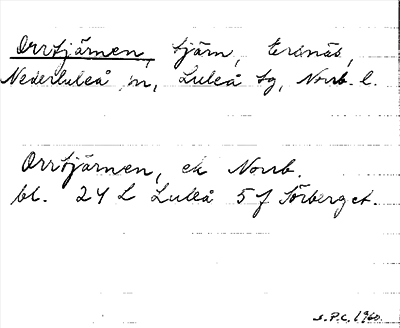 Orrtjärnen, tjärn, Ersnäs,
Nederluleå sn, Luleå tg, Norrb. l.
Orrtjärnen, ek Norrb.
bl. 24 L Luleå 5 f Sörberget.
S.P.C. 1960.